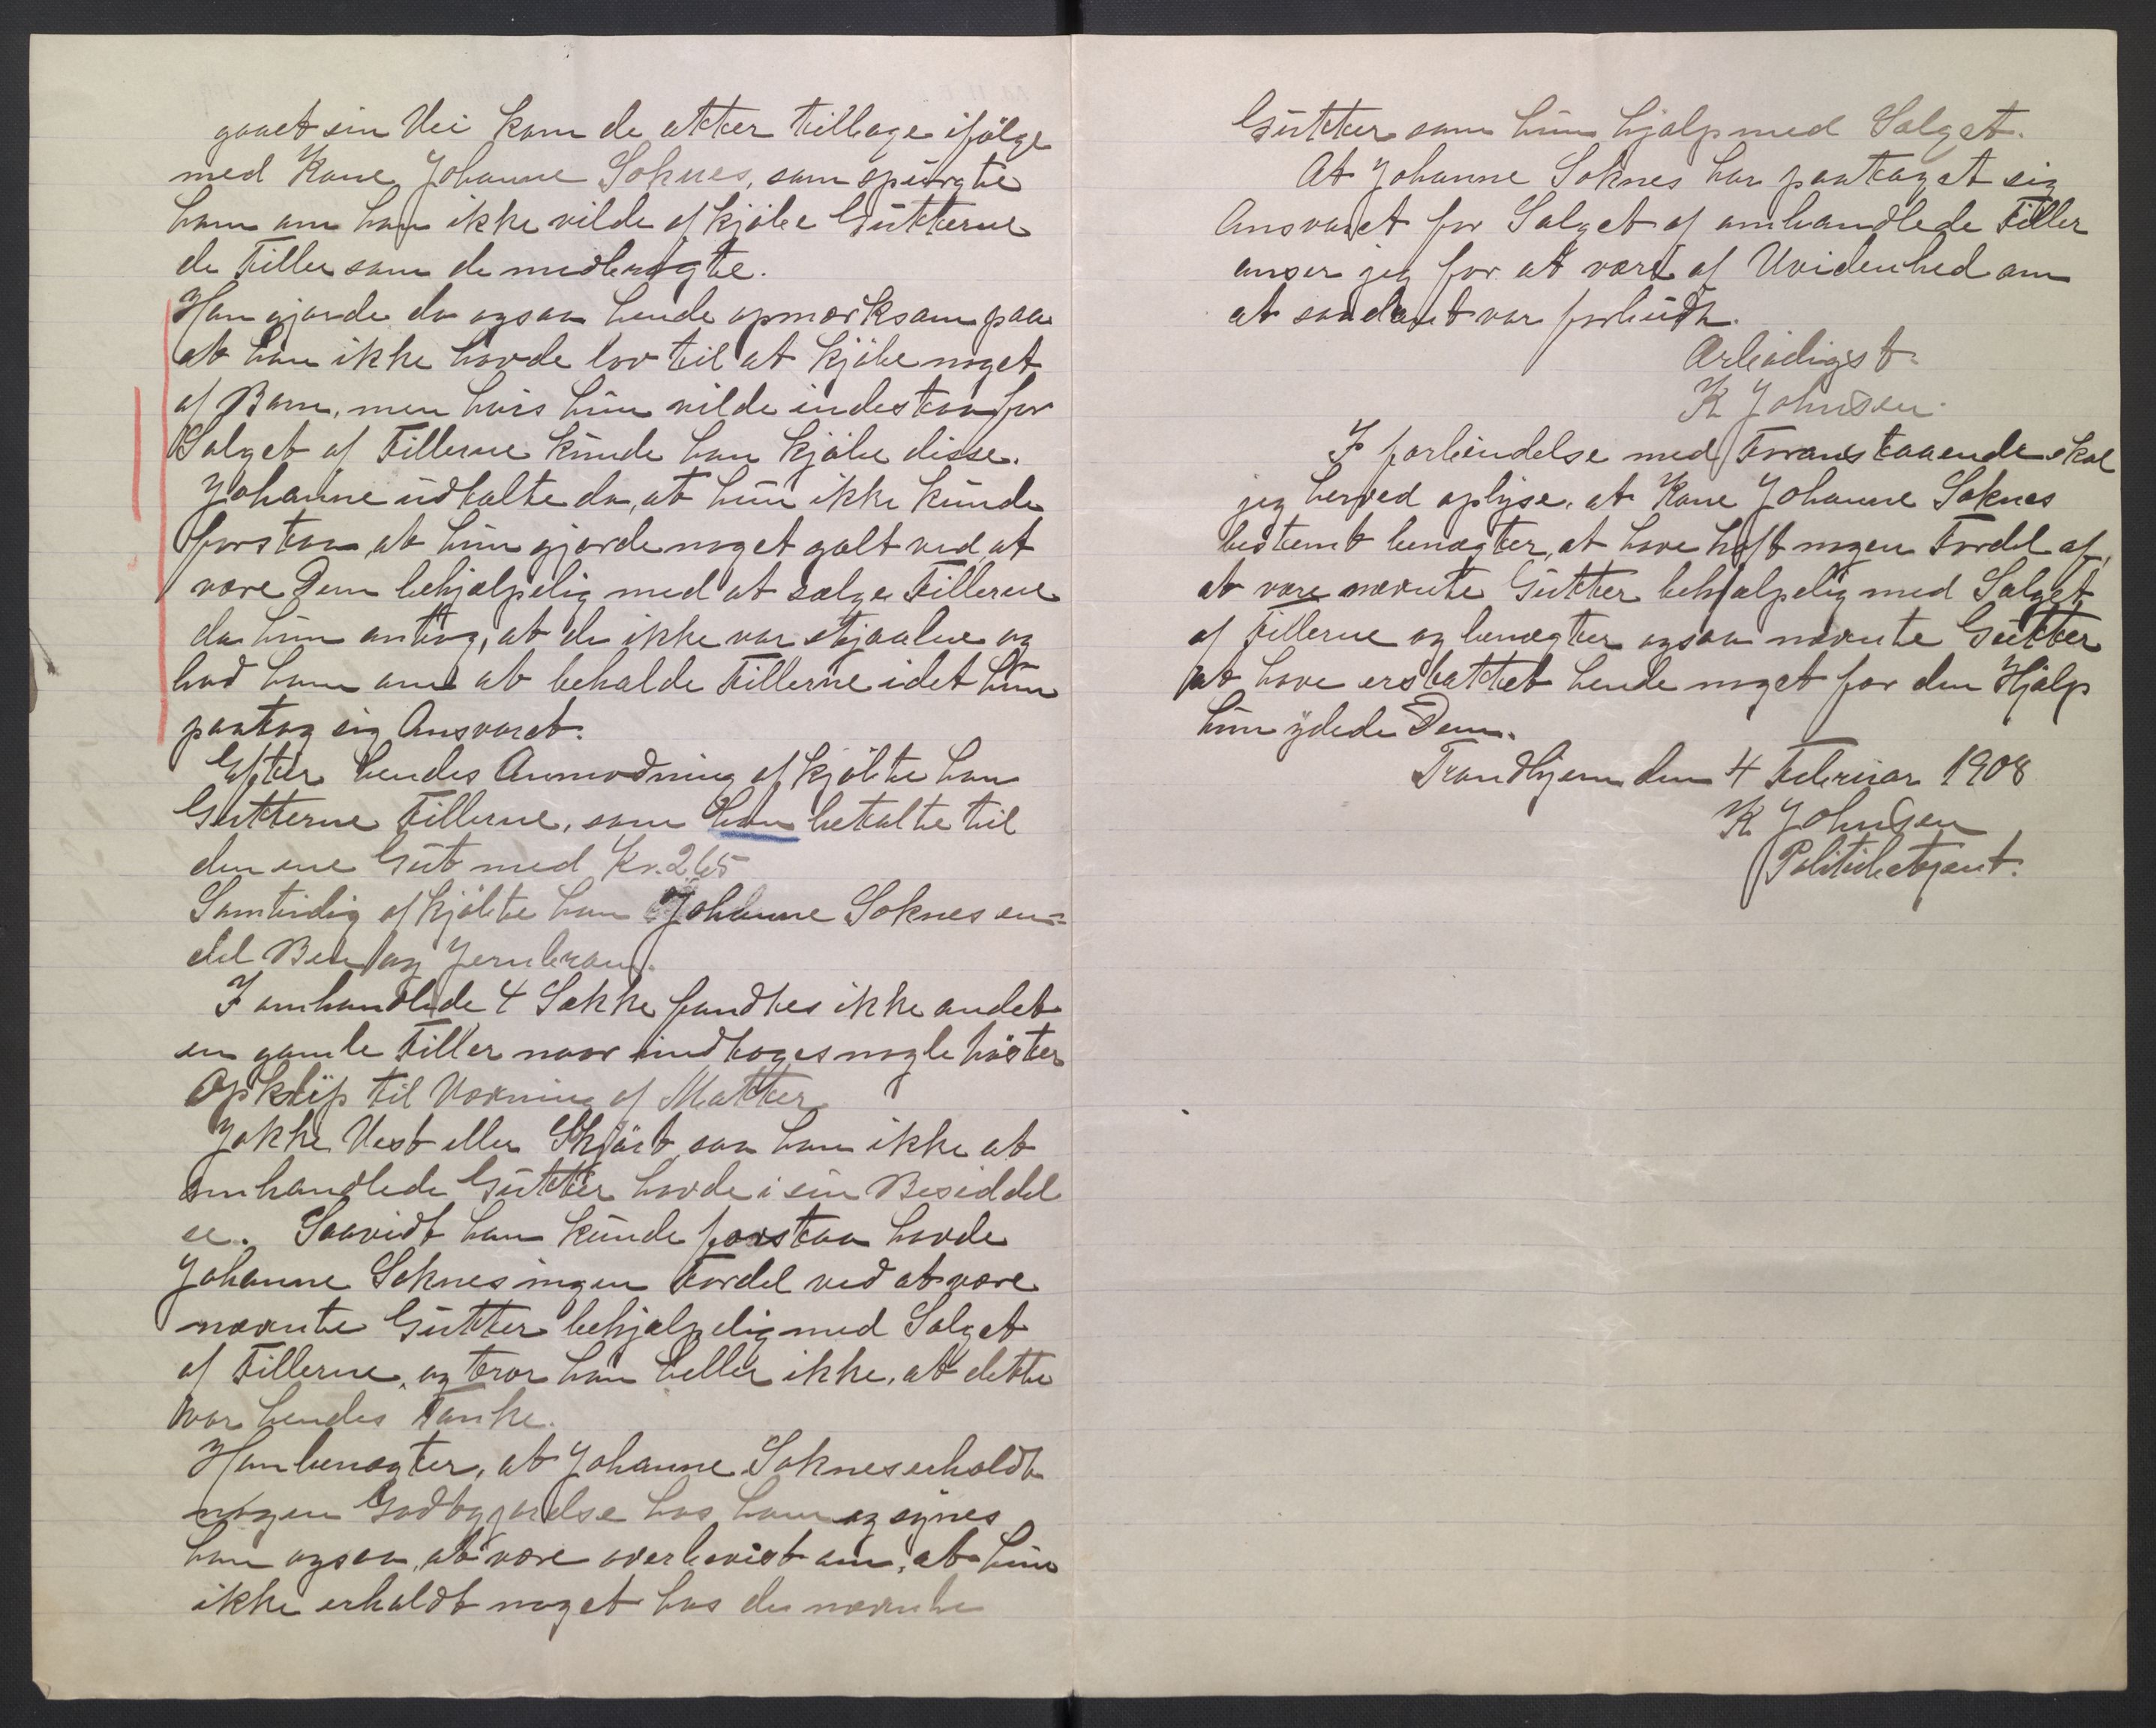 gaaet sin Vei kom de atter tilbage ifölge
med Kone Johanne Soknes, som spurgte
ham om han ikke vilde afkjöbe Gutterne
de Filler som de medbragte.
Han gjorde da ogsaa hende opmærksom paa
at han ikke havde lov til at kjöbe noget
af Barn, men hvis hun vilde indestaa for
Salget af Fillerne kunde han kjöbe disse.
Johanne udtalte da, at hun ikke kunde
forstaa at hun gjorde noget galt ved at
være Dem behjælpelig med at sælge Fillerne
da hun antog, at de ikke var stjaalne og
bad ham om at beholde Fillerne idet hun
paatog sig Ansvaret.
Efter hendes Anmodning afkjöbte han
Gutterne Fillerne, som han betalte til
den ene Gut med Kr. 2.65
Samtidig afkjöbte han Johanne Soknes en=
del Ben og Jernkram.
I omhandlede 4 Sække fandtes ikke andet
en gamle Filler naar undtages nogle
Opklip til Vævning af Matter
Jakke Vest eller Skjört saa han ikke at
omhandlede Gutter havde i sin Besiddel
se. Saavidt han kunde forstaa havde
Johanne Soknes ingen Fordel ved at være
nævnte Gutter behjælpelig med Salget
af Fillerne, og tror han heller ikke, at dette
var hendes Tanke.
Han benægter, at Johanne Soknes erholdt
nogen Godtgjørelse hos ham og synes
han ogsaa, at være overbevist om, at hun
ikke erholdt noget hos de nævnte
Gutter som hun hjalp med Salget.
At Johanne Soknes har paataget sig
Ansvaret for Salget af omhandlede Filler
anser jeg for at være af Uvidenhed om
at saadant var forbudt.
Ærbödigst
K Johnsen.
I forbindelse med Foranstaaende skal
jeg herved oplyse, at Kone Johanne Soknes
bestemt benægter, at have haft nogen Fordel af,
at være nævnte Gutter behjælpelig med Salget
af Fillerne og benægter ogsaa nævnte Gutter
at have erstattet hende noget for den Hjælp
hun ydede Dem.
Trondhjem den 4 Februar 1908
K Johnsen
Politibetjent.